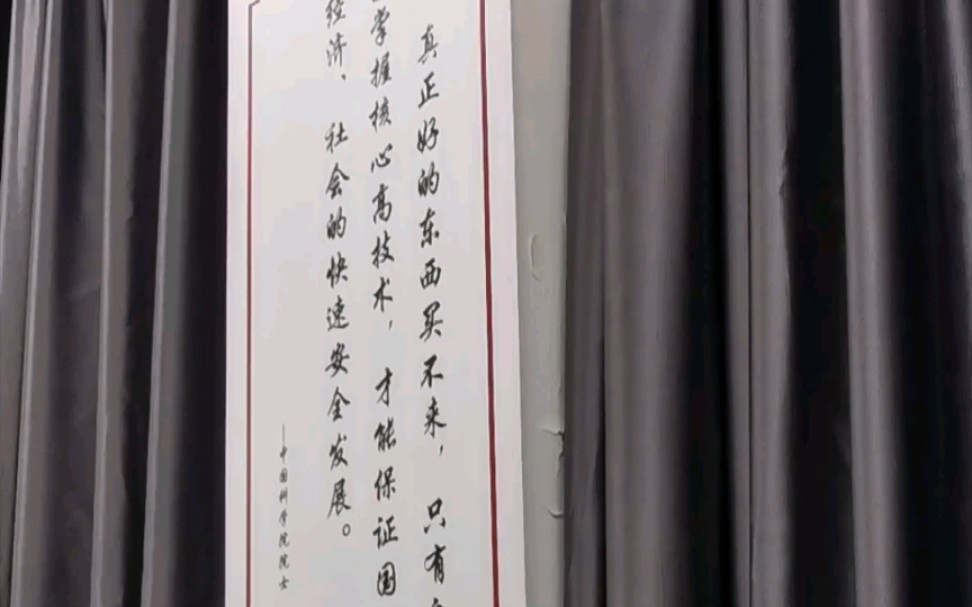 真正好的东西买不来，只有
掌握核心高技术，才能保证国
经济、社会的快速安全发展。
——中国科学院院士